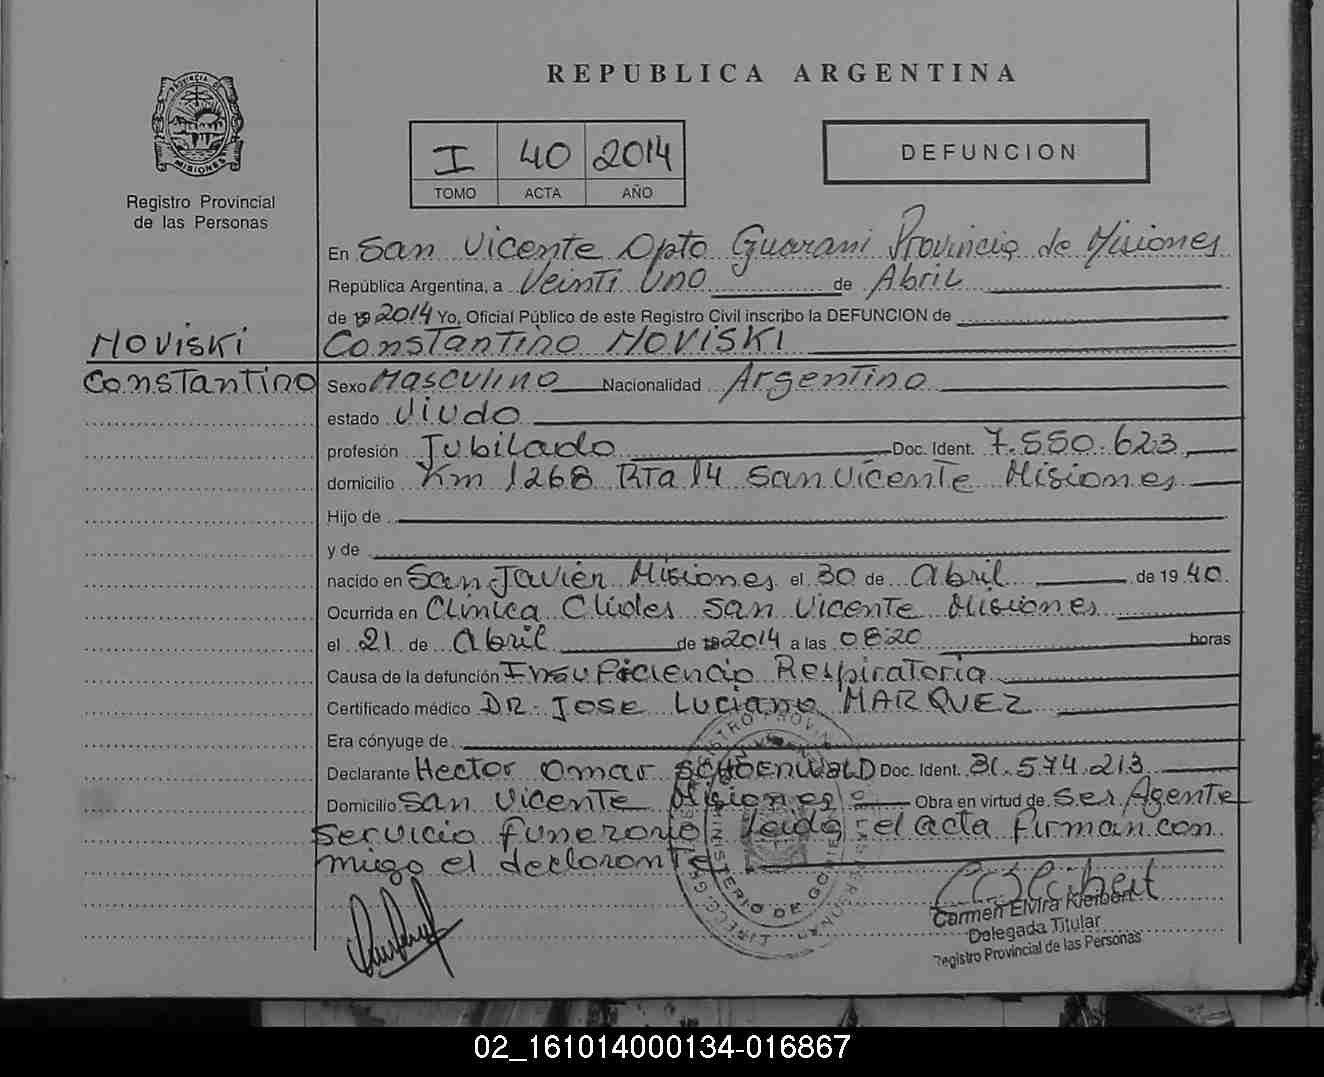 REPUBLICA ARGENTINA
PROVINCIA DE MISIONES
Registro Provincial
de las Personas
I 40 2014
TOMO ACTA AÑO
DEFUNCION
En San Vicente Dpto Guarani Provincia de Misiones
República Argentina, a Veinti Uno de Abril
de 2014 Yo, Oficial Público de este Registro Civil inscribo la DEFUNCION de
MOVISKI Constantino MOVISKI
Constantino Sexo Masculino Nacionalidad Argentino
estado Viudo
profesión Jubilado Doc. Ident. 7.550.623
domicilio Km 1268 RTa 14 San Vicente Misiones
Hijo de
y de
nacido en San Javier Misiones el 30 de Abril de 1940.
Ocurrida en Clinica Clides San Vicente Misiones
el 21 de Abril de 2014 a las 08:20 horas
Causa de la defunción Insuficiencia Respiratoria
Certificado médico DR. JOSE Luciano MARQUEZ
Era cónyuge de
Declarante Hector Omar SCHOENWALD Doc. Ident. 31.574.213
Domicilio San Vicente Misiones Obra en virtud de Ser Agente
Servicio funerario leida el acta firman con
migo el declarante
Carmen Elvira Kleibert
Delegada Titular
Registro Provincial de las Personas
02_161014000134-016867